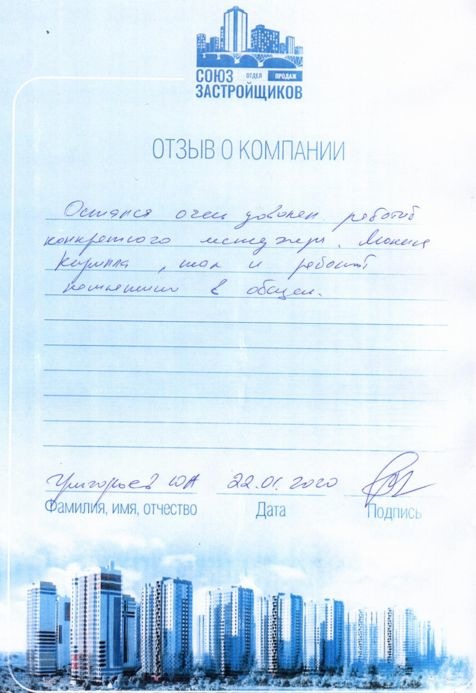 СОЮЗ ОТДЕЛ ПРОДАЖ
ЗАСТРОЙЩИКОВ
ОТЗЫВ О КОМПАНИИ
Остался очен доволен работой
конкретного менеджера,
Кирилла, так и работой
компании в общем.
Григорьев ЮА 22.01.2020
Фамилия, имя, отчество Дата Подпись